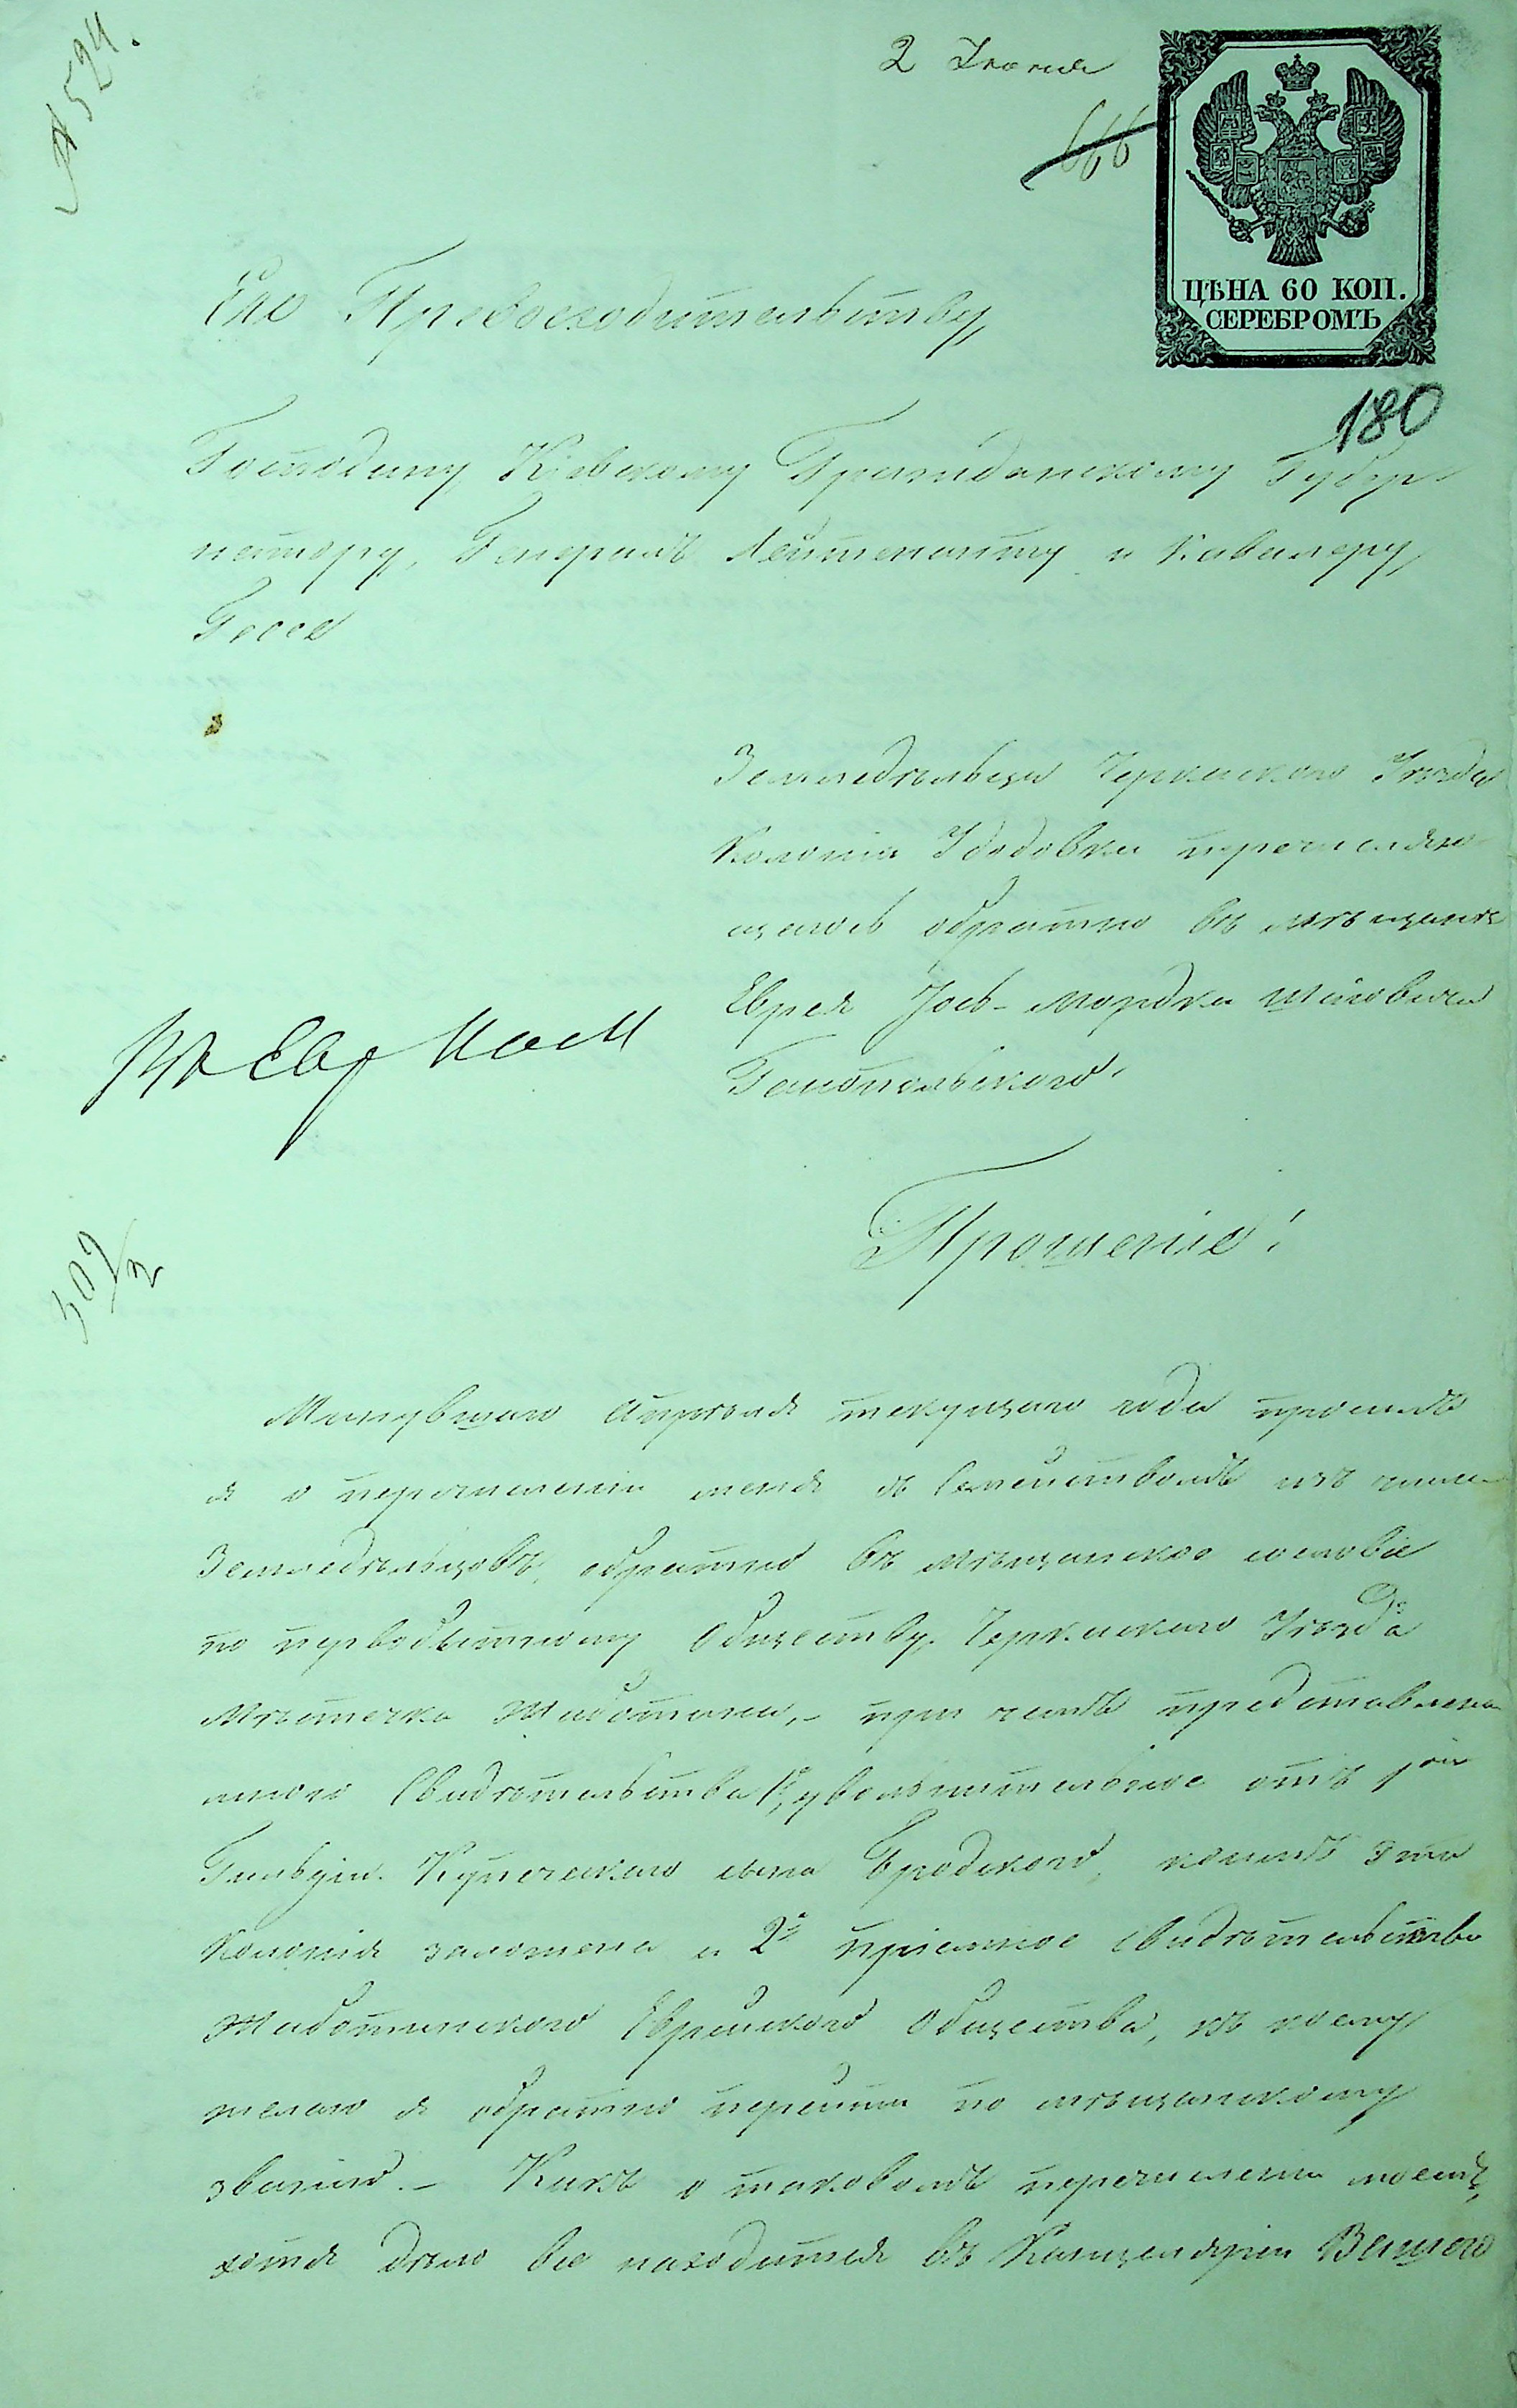 № 524.
2 Іюня
666
ЦѢНА 60 КОП.
СЕРЕБРОМЪ
180
Его Превосходительству,
Господину Кіевскому Гражданскому Губер-
натору, Генералъ Лейтенанту и Кавалеру,
Гессе
Земледѣльца Черкаскаго Уѣзда
Колоніи Удодовки перечисляю-
щагось обратно въ мѣщане
Еврея Іось-Мордка
Прошеніе!
309/3
Минувшаго Апрѣля текущаго года просилъ
я о перечисленіи меня съ Семействомъ изъ числа
Земледѣльцовъ, обратно въ мѣщанское сословіе
по первобытному Обществу, Черкаскаго Уѣзда
Мѣстечка Жаботина, - при чемъ представлено
мною Свидѣтельства 1е, увольнительное отъ 1ой
Гильдіи Купеческаго сына Бродскаго, коимъ эта
Колонія заложена и 2е пріемное Свидѣтельство
Жаботинского Еврейского Общества, къ коему
желаю я обратно перейти по мѣщанскому
званію. - Какъ о таковомъ перечисленіи моемъ,
хотя дѣло все находится въ Канцеляріи Вашего